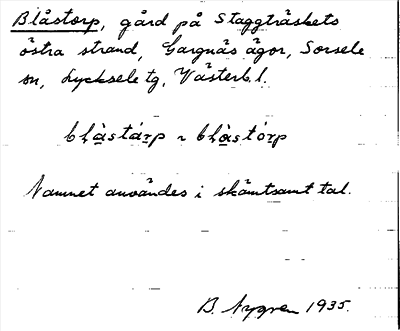 Blåstorp, gård på Staggträskets
östra strand, Gargnäs ägor, Sorsele
sn, Lycksele tg, Västerb. l.
blå̀stȧrp ~ blå̀stȯrp
Namnet användes i skämtsamt tal.
B. Nygren 1935.